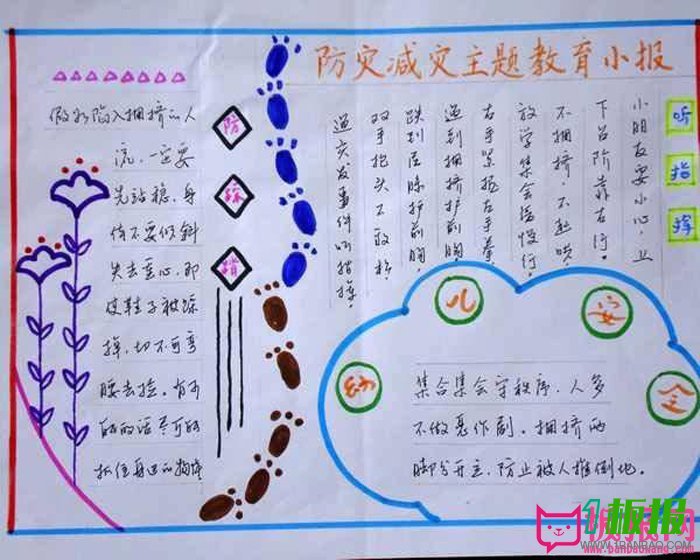 防灾减灾主题教育小报
听指挥
小朋友要小心，上
下台阶靠右行。
不拥挤，不起哄，
放学集会慢慢行。
右手紧握左手拳，
遇到拥挤护前胸，
跌到屈膝护前胸，
双手抱头不敢松，
遇突发事件听指挥。
防踩踏
假如陷入拥挤的人
流，一定要
先站稳，身
体不要倾斜
失去重心，即
使鞋子被踩
掉，切不可弯
腰去捡，有可
能的话尽可能
抓住身边的物体
幼儿安全
集合集会守秩序，人多
不做恶作剧。拥挤两
脚分开立，防止被人推倒地。
1板报
WWW.1BANBAO.COM